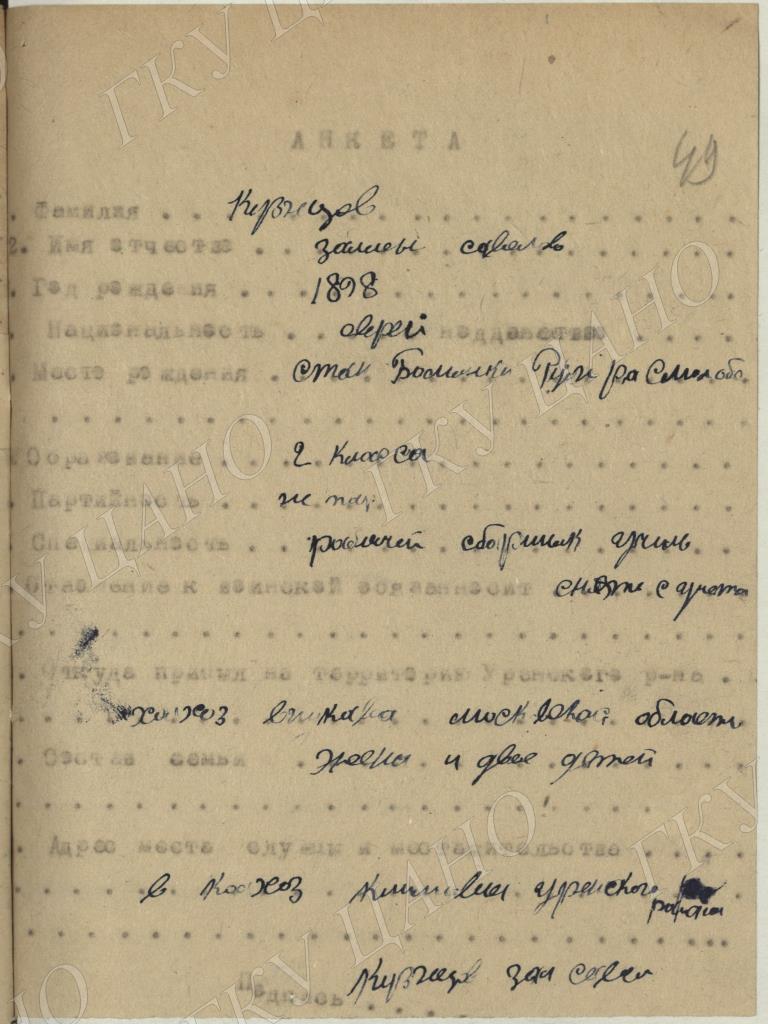 АНКЕТА
49
Фамилия . . Кузнецов
2. Имя отчество . .
Год рождения . . . 1898
Национальность . . еврей подданство
Место рождения . .
Образование . . 2 класса
Партийность . . не пар.
Специальность . . рабочий сборщик
Отношение к воинской обязанносит снят с учета
Откуда прибыл на территорию Уренского р-на .
колхоз московской области
Состав семьи . жена и двое детей
Адрес места службы и местожительство
в колхоз уренского
района
Подпись Кузнецов зал
ГКУ ЦАНО